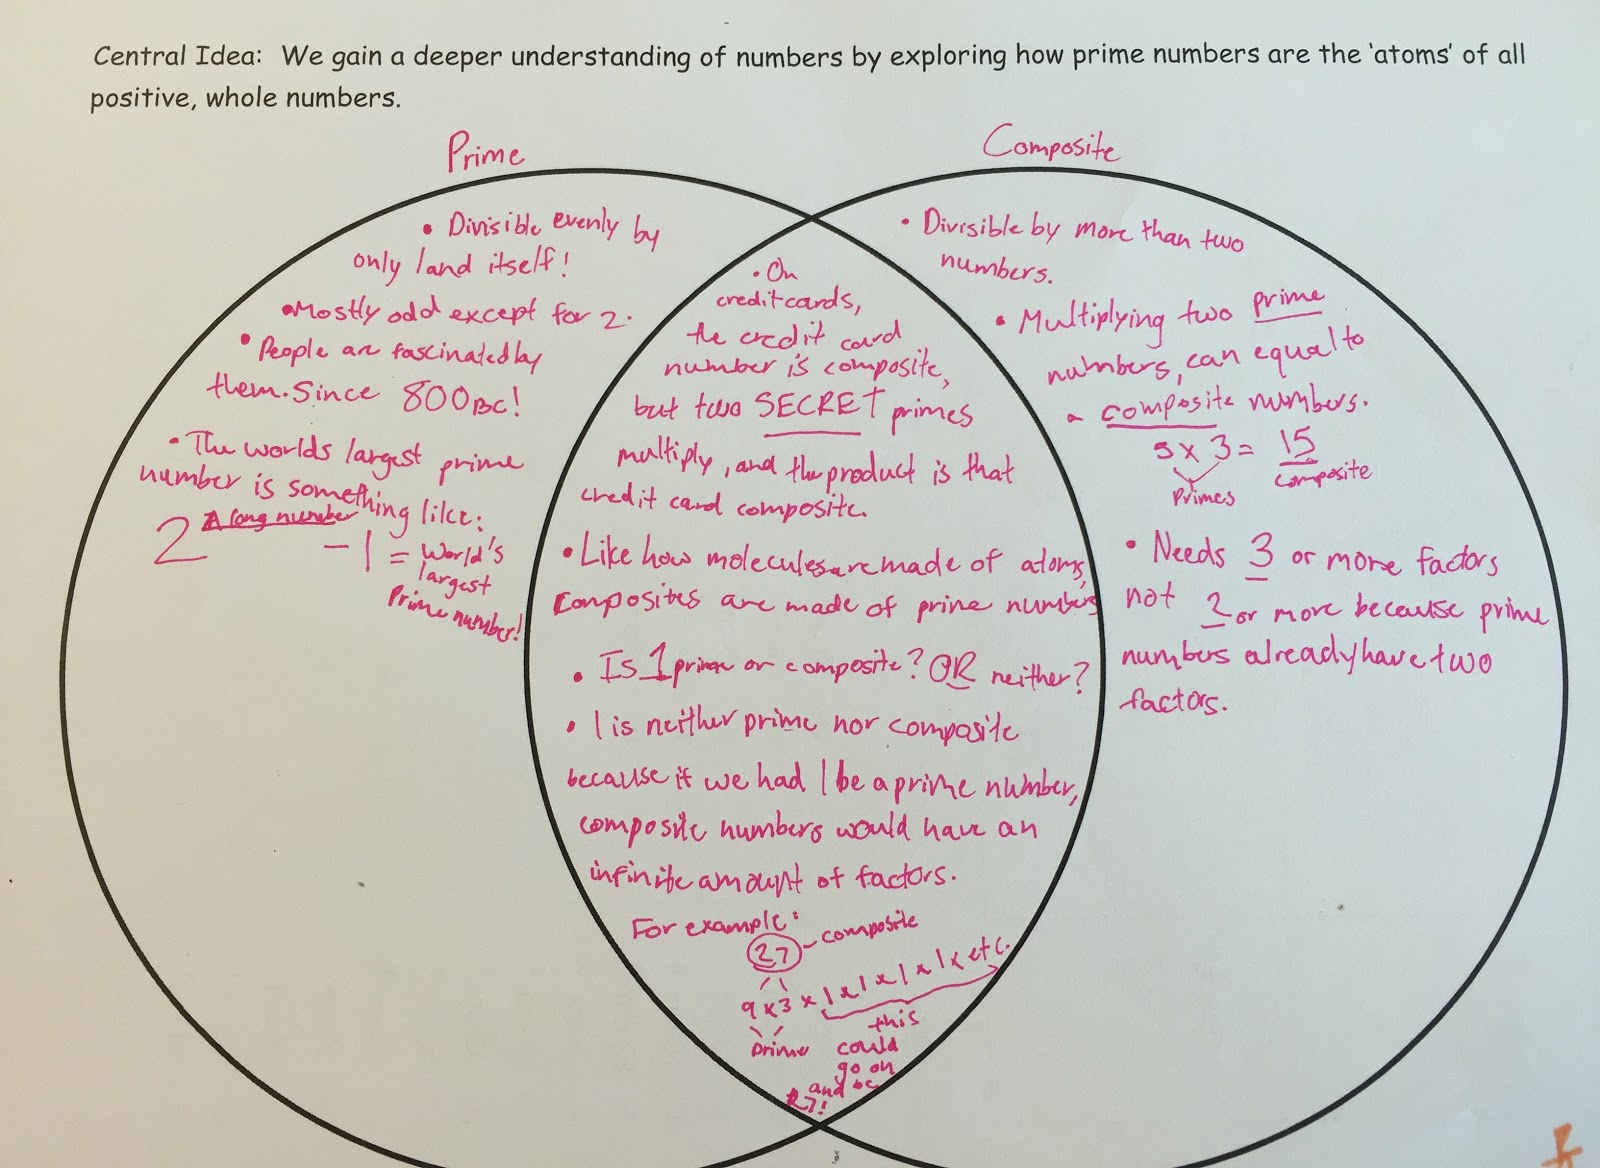 Central Idea: We gain a deeper understanding of numbers by exploring how prime numbers are the 'atoms' of all
positive, whole numbers.
Prime
• Divisible evenly by
only 1 and itself!
• Mostly odd except for 2.
• People are fascinated by
them. Since 800BC!
• The worlds largest prime
number is something like:
A long number
2 - 1 = World's
largest
Prime number!
• On
credit cards,
the credit card
number is composite,
but two SECRET primes
multiply, and the product is that
credit card composite.
• Like how molecules are made of atoms,
composites are made of prime numbers
• Is 1 prime or composite? OR neither?
• 1 is neither prime nor composite
because if we had 1 be a prime number,
composite numbers would have an
infinite amount of factors.
For example:
27 - composite
9 x 3 x 1 x 1 x 1 x 1 x etc.
prime
this
could
go on
and be
27!
Composite
• Divisible by more than two
numbers.
• Multiplying two prime
numbers, can equal to
a composite numbers.
5 x 3 = 15
Primes
composite
• Needs 3 or more factors
not 2 or more because prime
numbers already have two
factors.